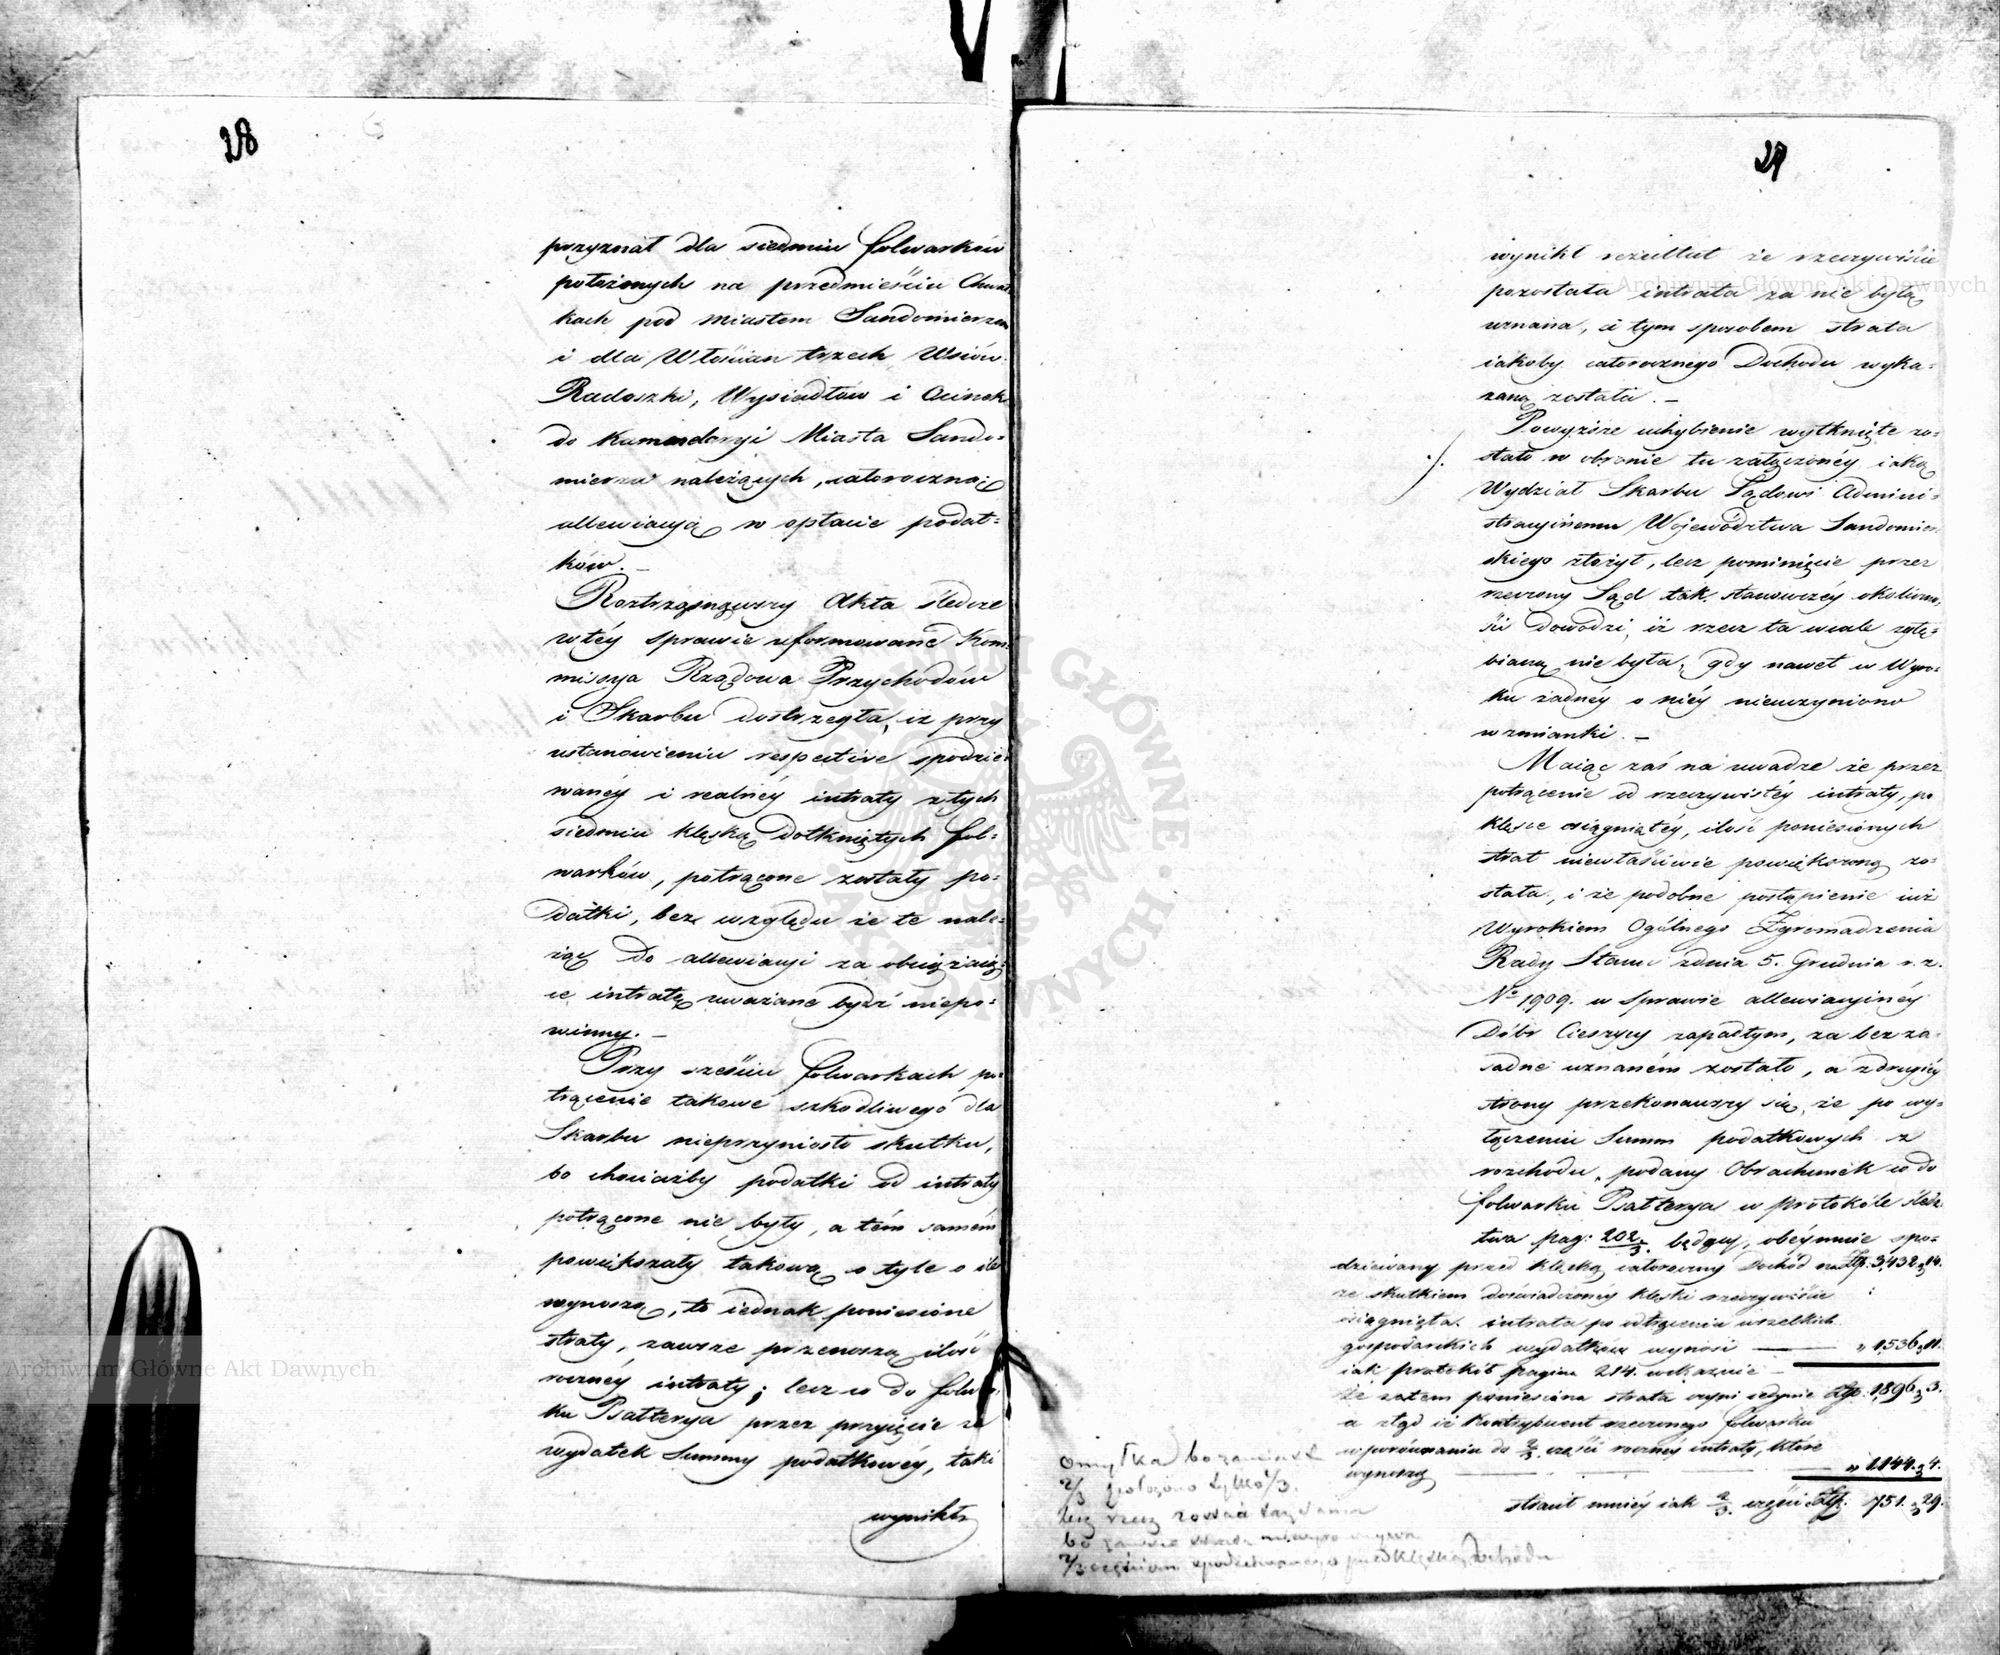 28
przyznał dla siedmiu folwarków
położonych na przedmieściu Chwał
kach pod Miastem Sandomierzem
i dla Włościan trzech Wsiów
Radoszki, Wysiadłów i Ocinek
do Kamandoryi Miasta Sando=
mierza należących, całoroczną
allewiacyą w opłacie podat=
ków. —
Roztrząsnąwszy Akta śledcze
w téy sprawie uformowane Kom=
missya Rządowa Przychodów
i Skarbu dostrzegła, iż przy
ustanowieniu respective spodzie=
wanéy i realnéy intraty z tych
siedmiu klęską dotkniętych fol=
warków, potrącone zostały po=
datki, bez względu że te nale=
żąc do allewiacyi za obciążaią=
ce intratę uważane bydź niepo=
winny. —
Przy sześciu folwarkach po=
trącenie takowe szkodliwego dla
Skarbu nieprzyniosło skutku,
bo chociażby podatki od intraty
potrącone nie były, a tém samém
powiększały takową o tyle o ile
wynoszą, to iednak poniesione
straty, zawsze przenoszą ilość
rocznéy intraty; lecz co do folwar
ku Batterya przez przyięcie za
wydatek Summy podatkowéy, taki
wynikł
29
wynikł rezultat że rzeczywiście
pozostała intrata za nic była
uznana, a tym sposobem strata
iakoby całorocznego Dochodu wyka=
zaną została. —
Powyższe uchybienie wytknięte zo=
stało w obronie tu załączonéy iaką
Wydział Skarbu Sądowi Admini=
stracyinemu Województwa Sandomier=
skiego złożył, lecz pominięcie przez
rzeczony Sąd tak stanowczéy okoliczno=
ści dowodzi, iż rzecz ta wcale zgłę=
bianą nie była, gdy nawet w Wyro=
ku żadnéy o niéy nieuczyniono
wzmianki. —
Maiąc zaś na uwadze że przez
potrącenie od rzeczywistéy intraty, po
klęsce osiągniętéy, ilość poniesionych
strat niewłaściwie powiększoną zo=
stała, i że podobne postąpienie iuż
Wyrokiem Ogólnego Zgromadzenia
Rady Stanu z dnia 5. Grudnia r. z.
No 1909. w sprawie allewiacyinéy
Dóbr Cieszycy zapadłym, za bezza=
sadne uznaném zostało, a z drugiéy
strony przekonawszy się, że po wy=
łączeniu Summ podatkowych z
rozchodu, podany Obrachunek co do
folwarku Batterya w protokóle śledz
twa pag: 202/3. będący, obéymuie spo=
dziewany przed klęską całoroczny Dochód na Złp. 3,432.14.
że skutkiem doświadczonéy klęski rzeczywiście
osiągnięta intrata po odtrąceniu wszelkich
gospodarskich wydatków wynosi — „ 1536.11.
iak protokół pagina 214. wskazuie —
że zatem poniesiona strata czyni iedynie Złp. 1,896.3.
a ztąd iż Kontrybuent rzeczonego folwarku
w porównaniu do 2/3. części rocznéy intraty, które
wynoszą — — — „ 1144.4.
stracił mniéy iak 2/3. części Złp. 751.29.
Omyłka bo zamiast
2/3 położono tylko 1/3.
lecz rzecz
bo zawsze strata
2/3 częściom spodziewanego przed klęską Dochodu